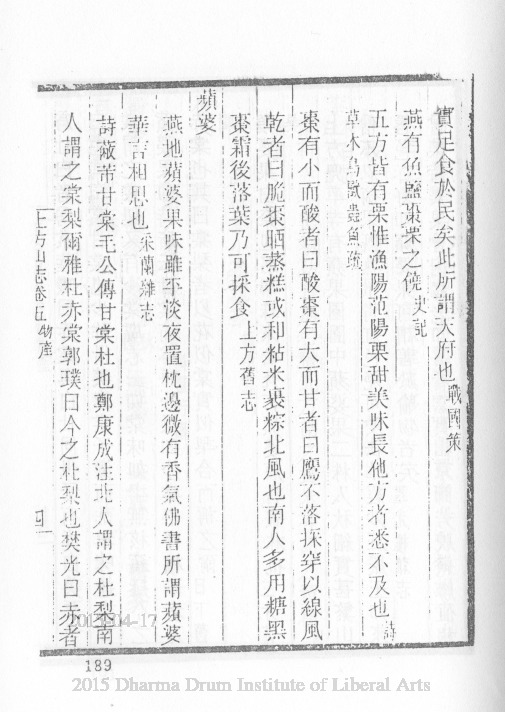 實足食於民矣此所謂天府也戰國策
燕有魚鹽棗栗之饒史記
五方皆有栗惟漁陽范陽栗甜美味長他方者悉不及也詩
草木鳥獸蟲魚疏
棗有小而酸者曰酸棗有大而甘者曰鷹不落採穿以線風
乾者曰脆棗晒蒸糕或和粘米裹粽北風也南人多用糖黑
棗霜後落葉乃可採食上方舊志
蘋婆
燕地蘋婆果味雖平淡夜置枕邊微有香氣佛書所謂蘋婆
華言相思也采蘭雜志
詩蔽芾甘棠毛公傳甘棠杜也鄭康成注北人謂之杜梨南
人謂之棠梨爾雅杜赤棠郭璞曰今之杜梨也樊光曰赤者
上方山志卷五物產
四
189
2015 Dharma Drum Institute of Liberal Arts